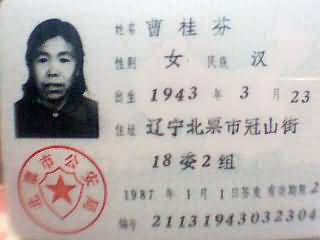 姓名 曹桂芬
性别 女 民族 汉
出生 1943 年 3 月 23
住址 辽宁北票市冠山街
18委2组
1987 年 1 月 1 日签发 有效期限 2
编号 21131943032304
北票市公安局